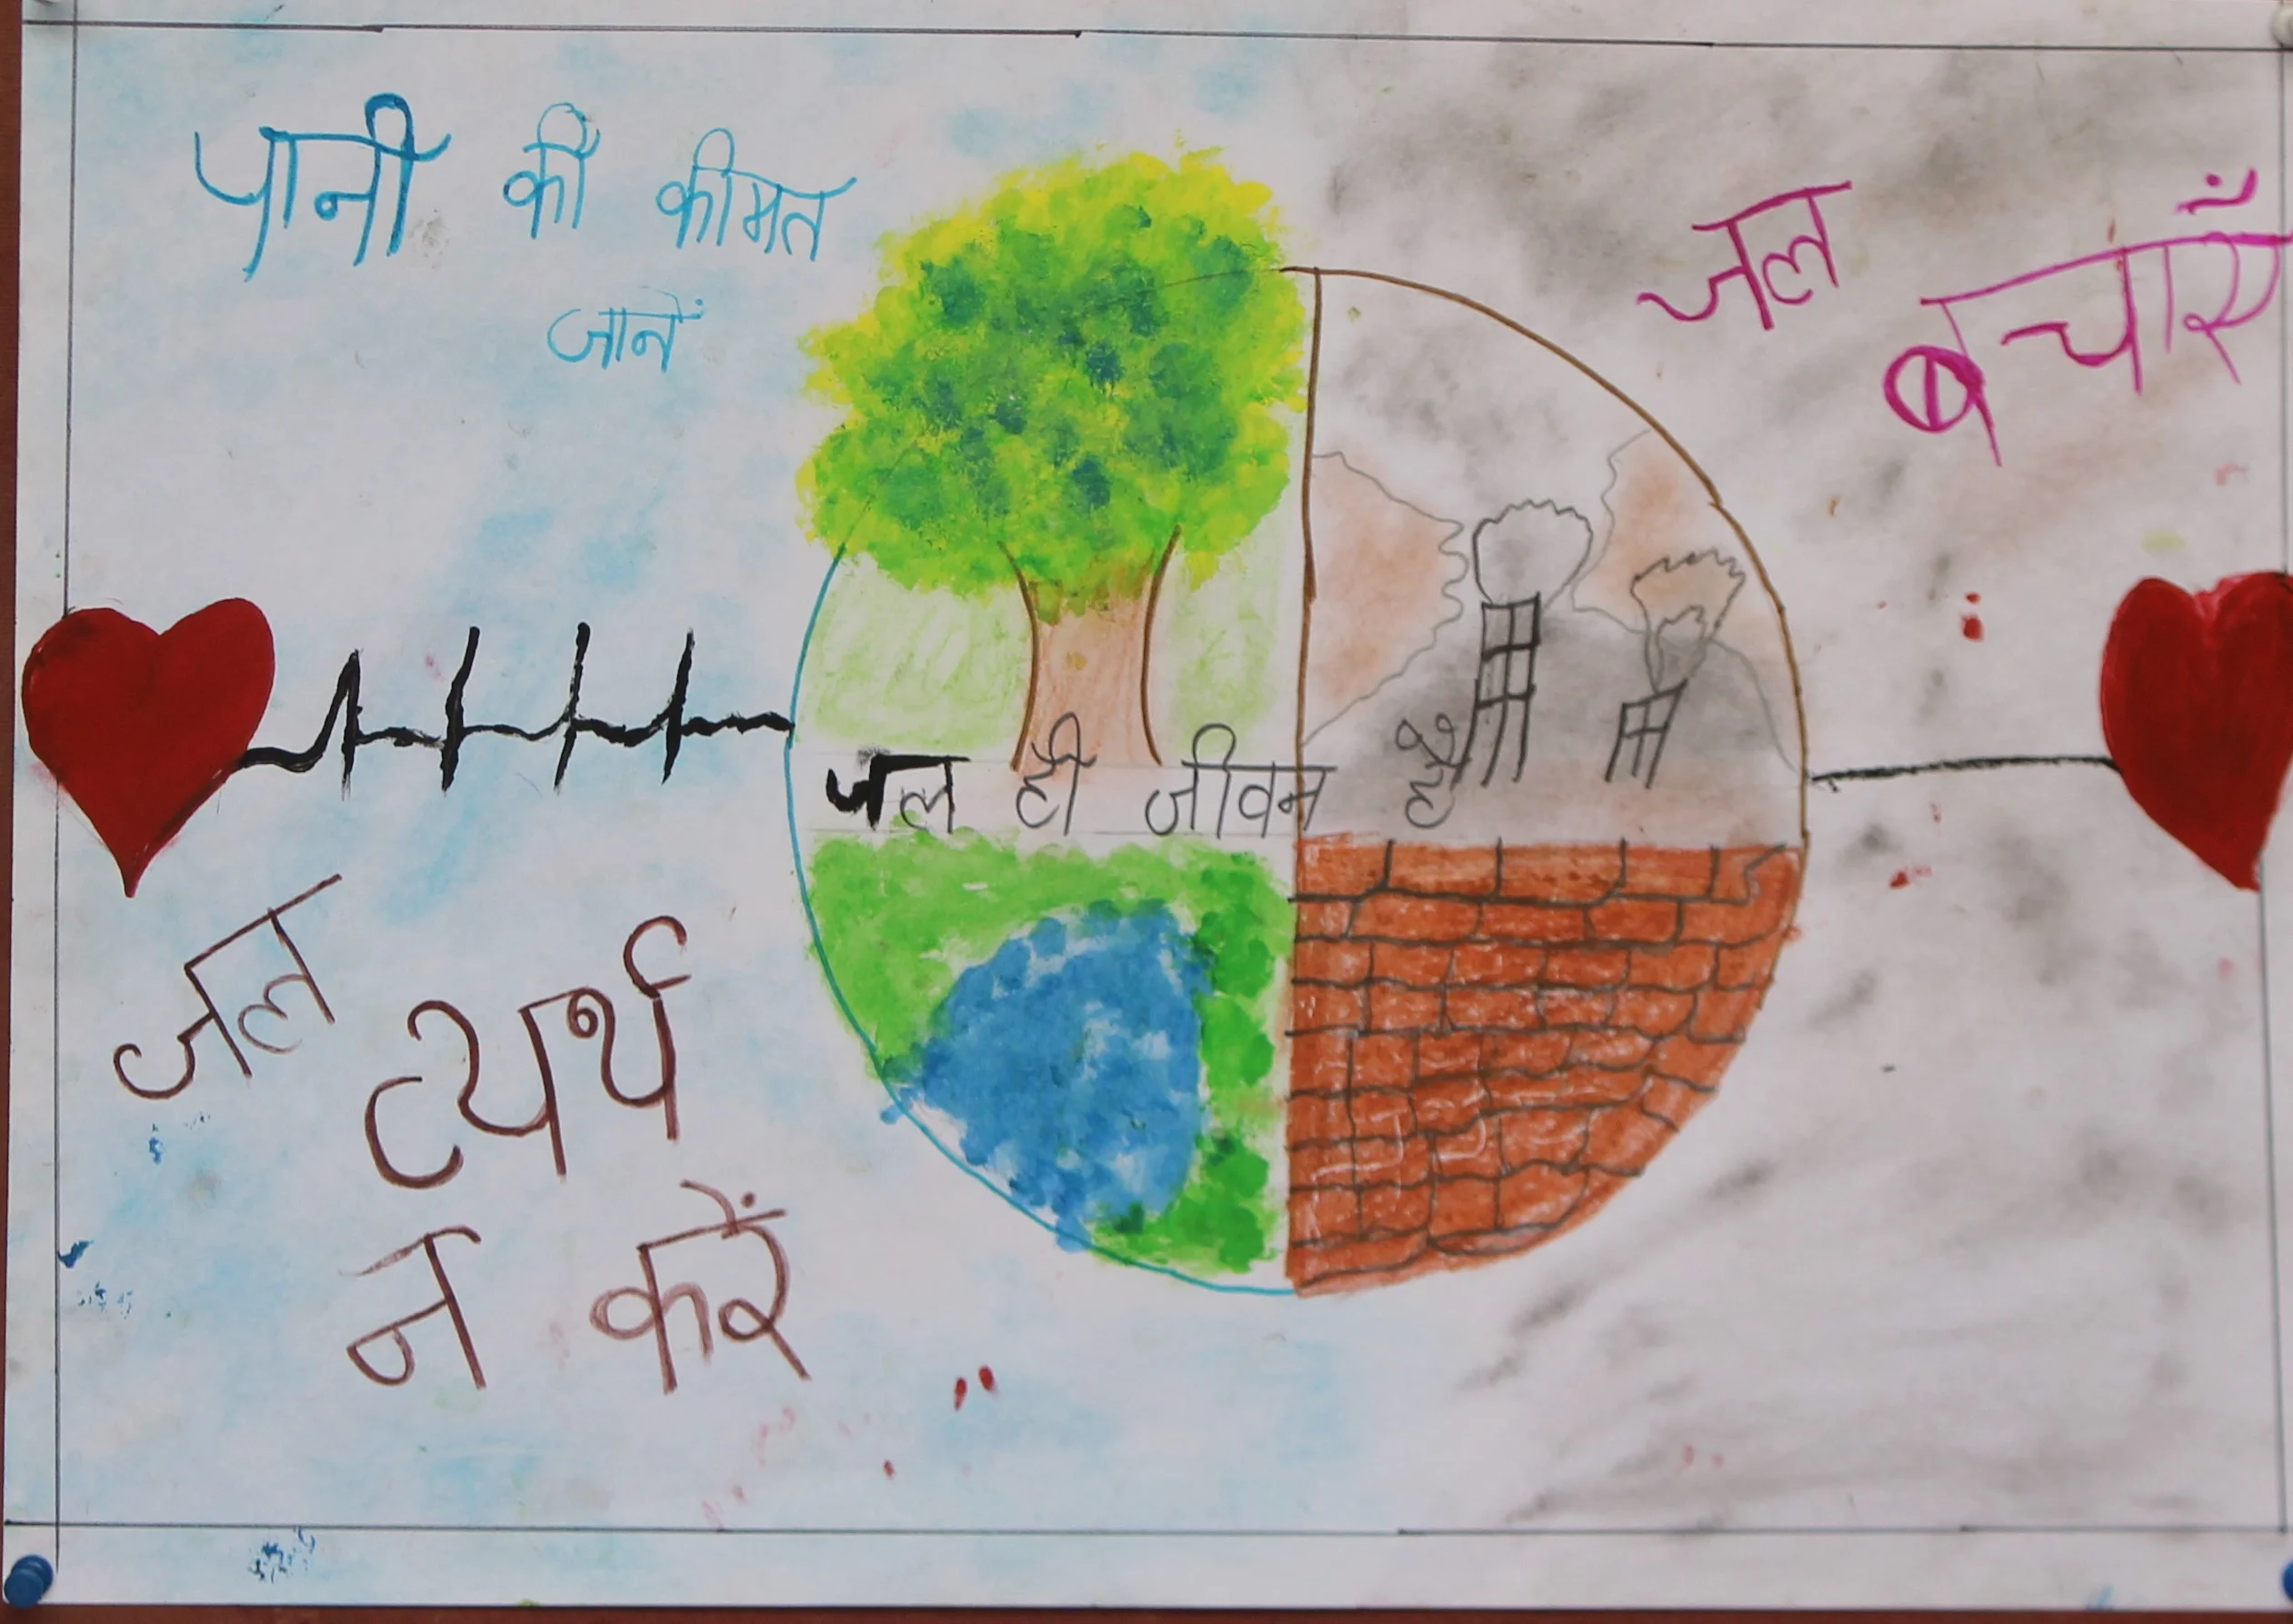 पानी की कीमत
जानें
जल
बचाएँ
जल ही जीवन है
जल
व्यर्थ
न करें